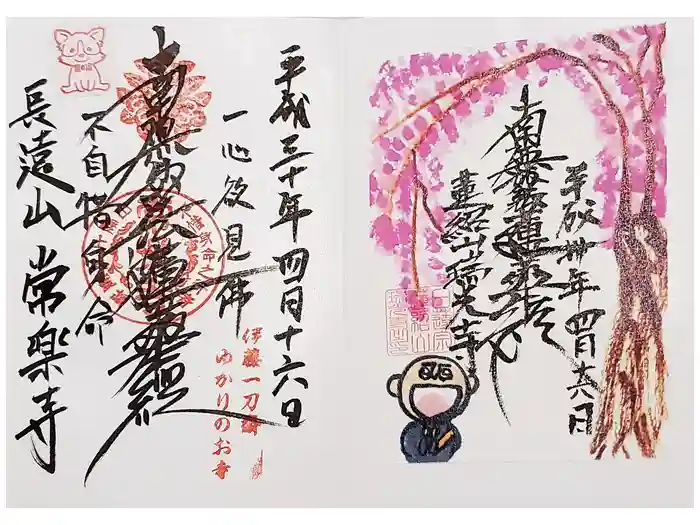 平成三十年四月十六日
一心欲見佛
南無妙法蓮華経
不自惜身命
長遠山 常楽寺
伊藤一刀斎
ゆかりのお寺
平成卅年四月十六日
南無妙法蓮華経
蓮紹山瑞光寺